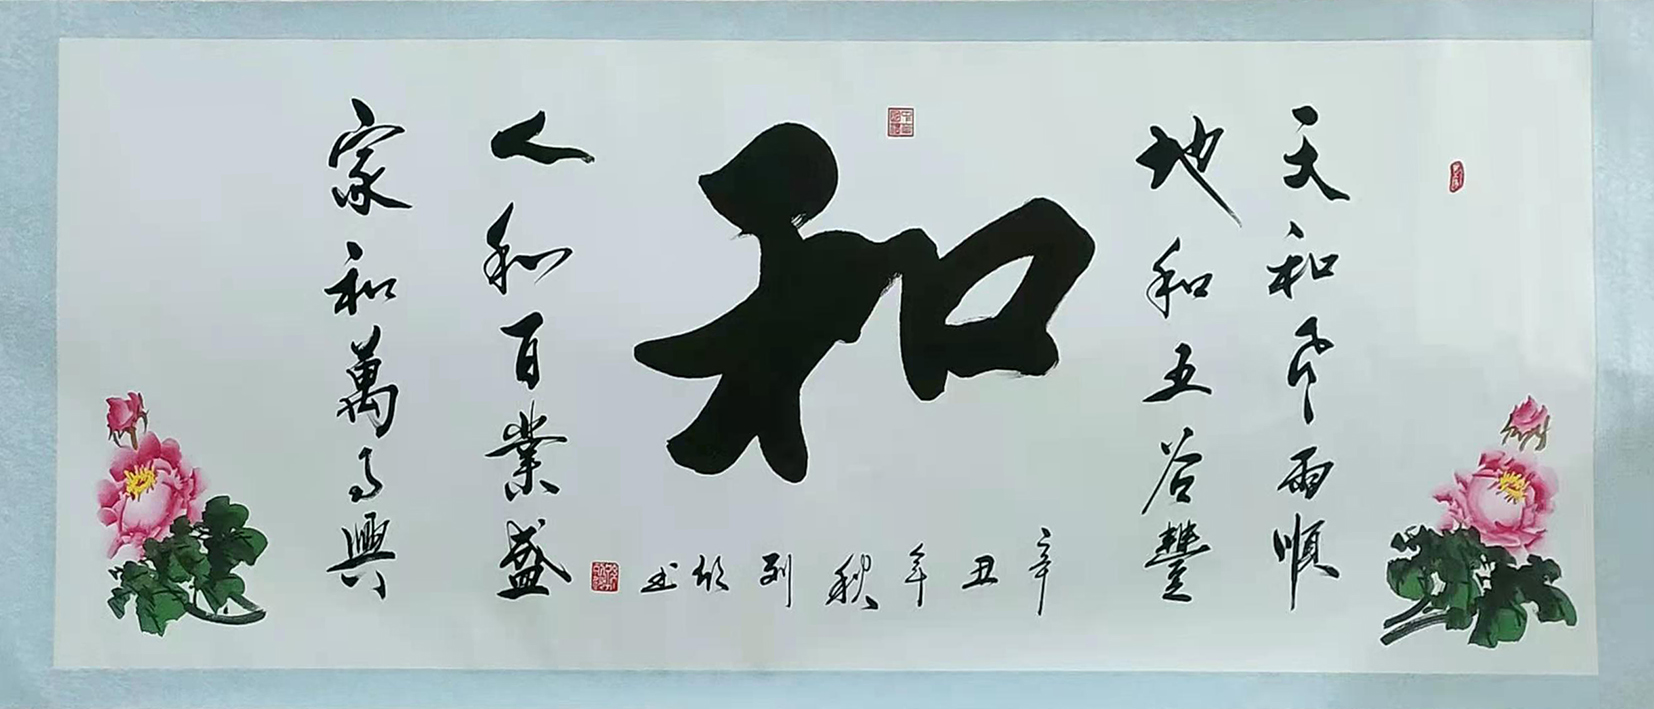 天和风雨順
地和五谷豐
和
辛丑年秋
书
人和百業盛
家和萬事興